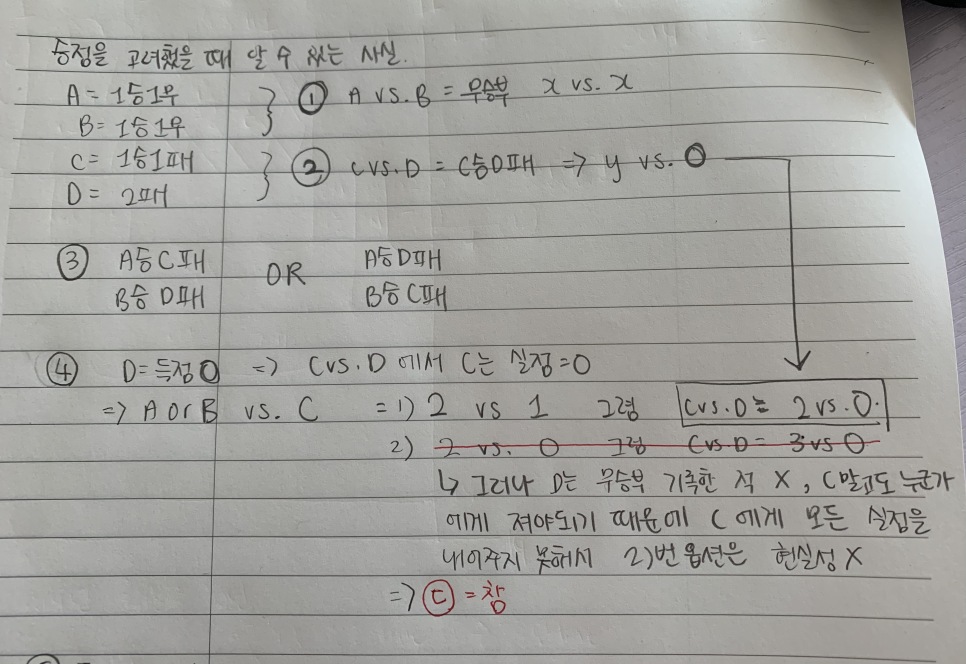 승점을 고려했을 때 알 수 있는 사실.
A = 1승1무
B = 1승1무
① A vs. B = 무승부 x vs. x
C = 1승1패
D = 2패
② C vs. D = C승D패 => y vs. 0
③ A승 C패 OR A승 D패
B승 D패 B승 C패
④ D = 득점 0 => C vs. D 에서 C는 실점=0
=> A or B vs. C = 1) 2 vs 1 그럼 C vs. D = 2 vs. 0.
2) 2 vs. 0 그럼 C vs. D = 3 vs 0
↳ 그러나 D는 무승부 기록한 적 X, C말고도 누군가
에게 져야되기 때문에 C에게 모든 실점을
내어주지 못해서 2)번 옵션은 현실성 X
=> ㄷ = 참